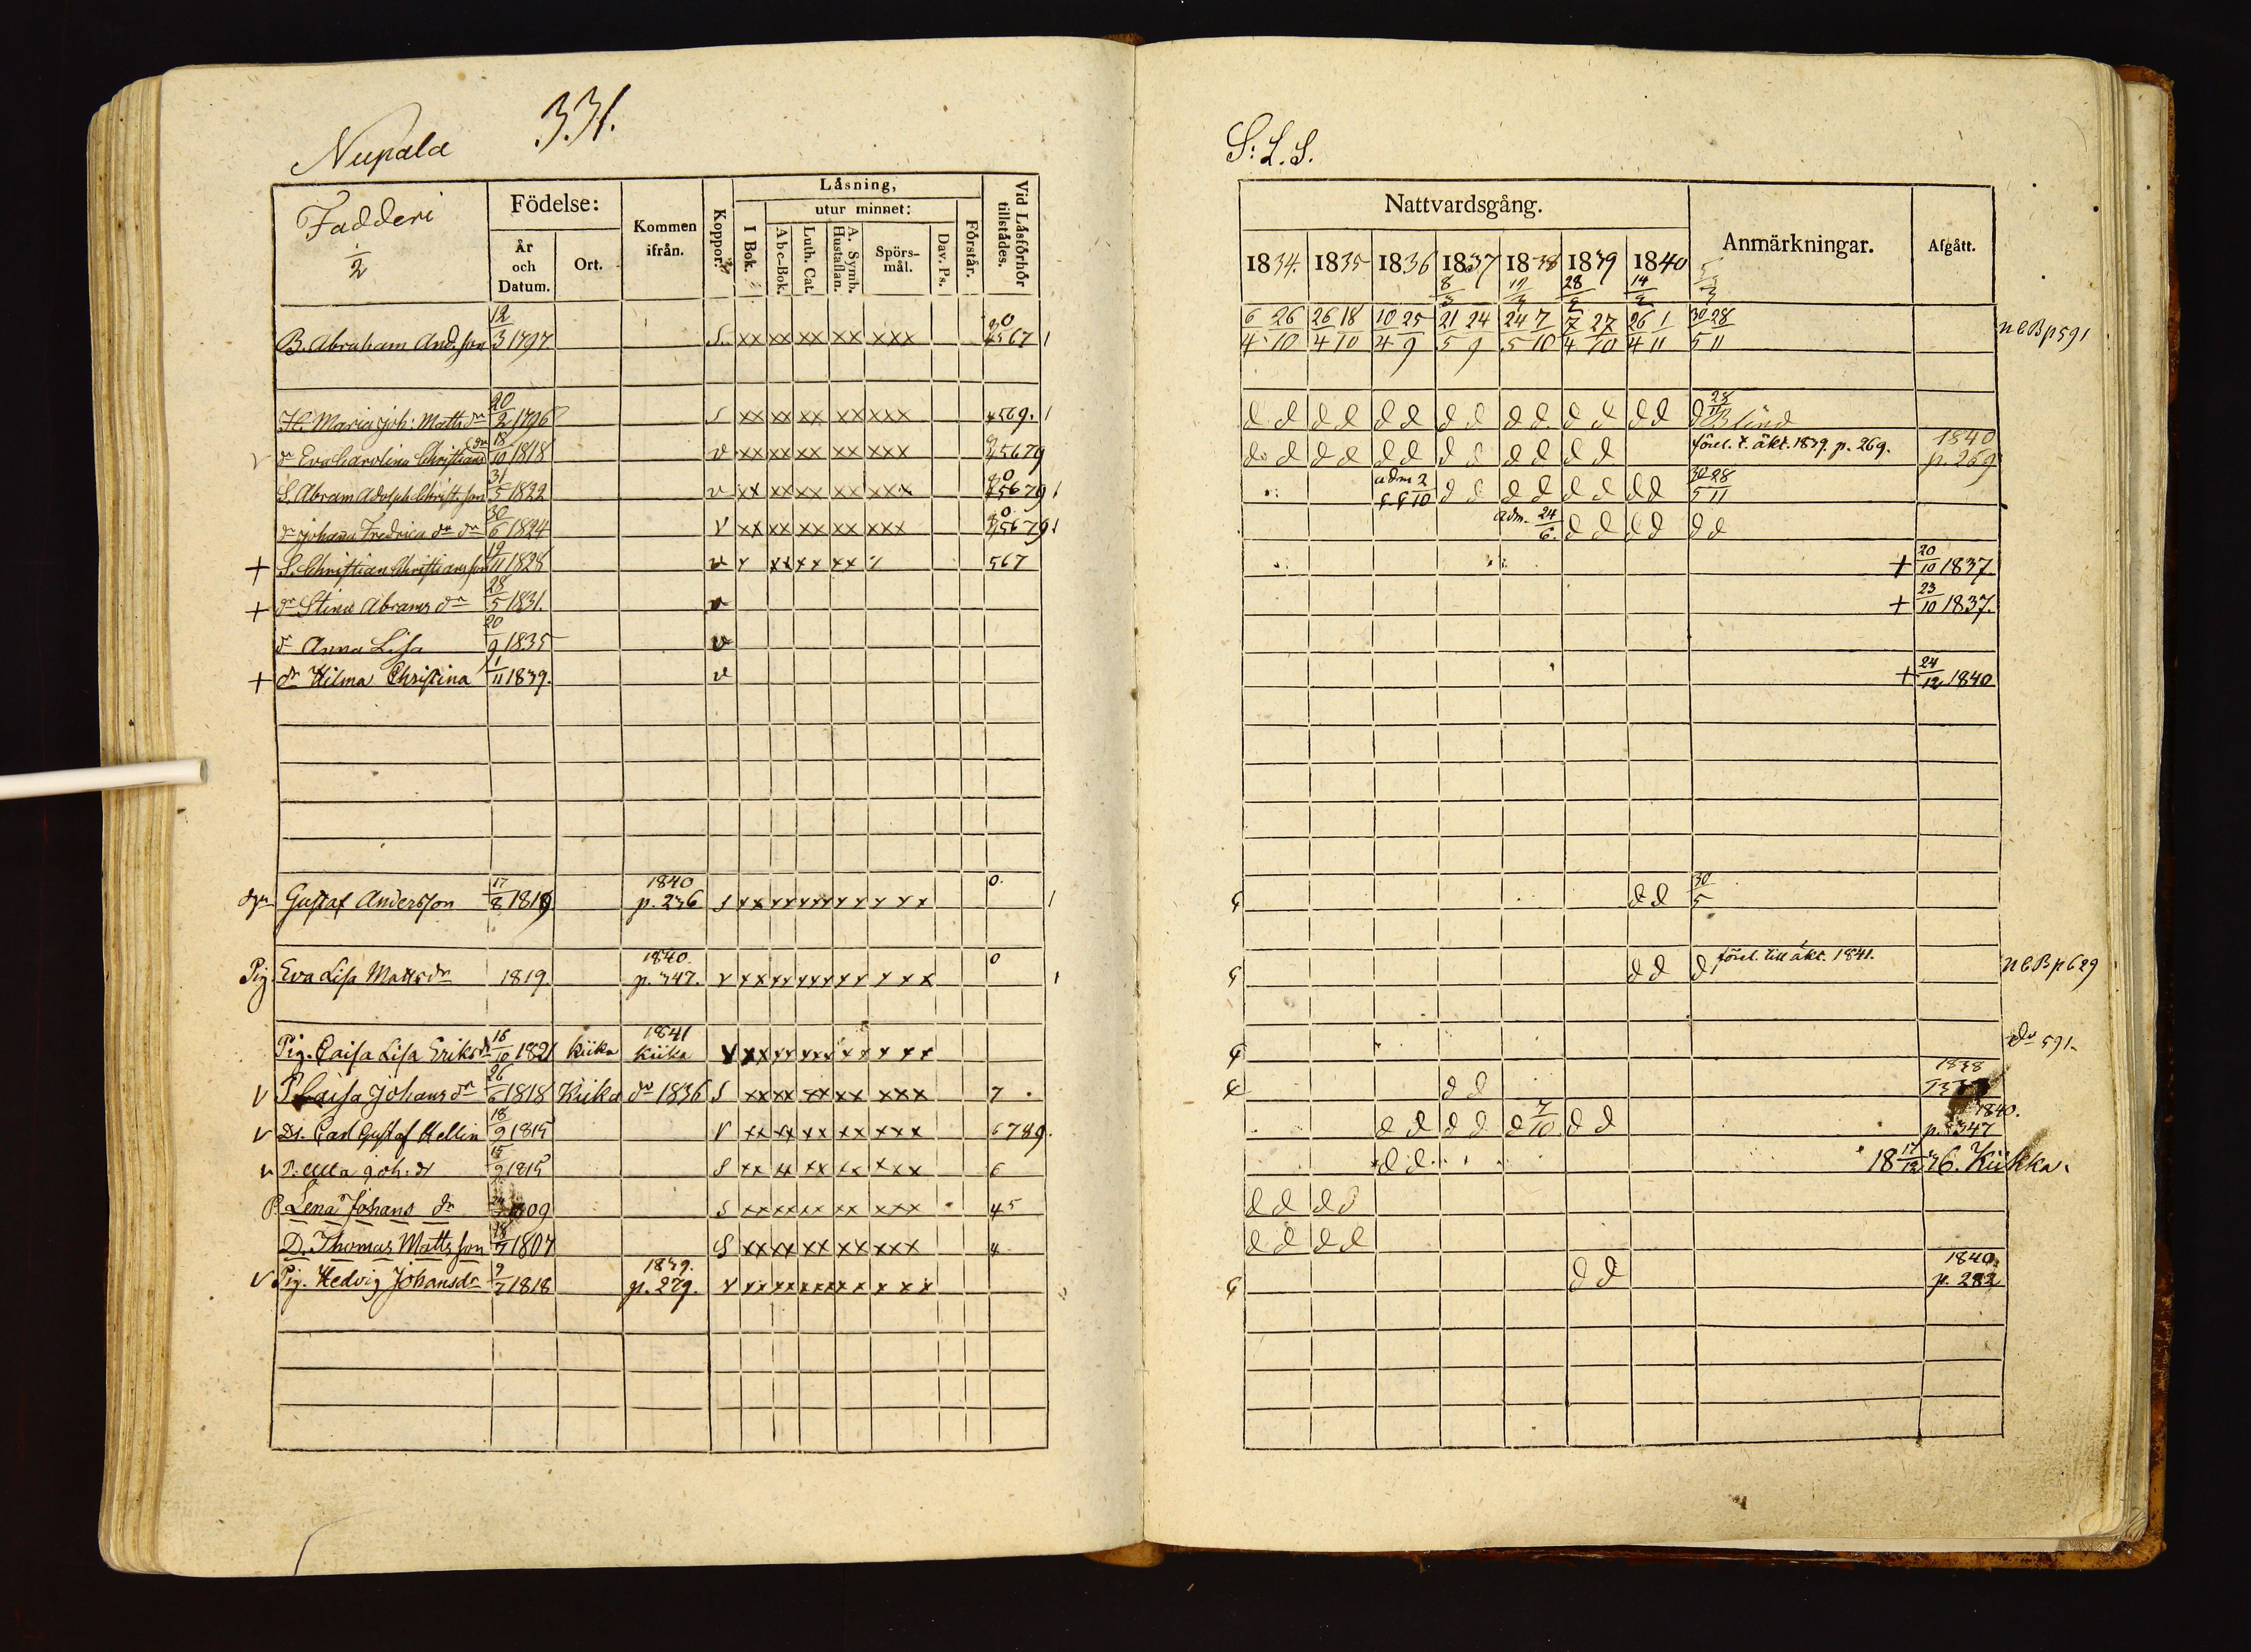 331.
Nupala
Fadderi
1/2
Födelse:
År och Datum.
Ort.
Kommen ifrån.
Koppor.
Låsning,
I Bok.
utur minnet:
Abc-Bok.
Luth. Cat.
A. Symb. Hustaflan.
Spörsmål.
Dav. Ps.
Förstår.
Vid Låsförhör tillstådes.
B. Abraham And.son 12/3 1797 S. xx xx xx xx xxx 4567 1
H. Maria Joh: Matts dr 20/2 1796 S xx xx xx xx xxx 4569. 1
dr Eva Carolina Christians dr 18/10 1818 v xx xx xx xx xxx 45679
S. Abram Adolph Christ.son 31/5 1822 v xx xx xx xx xxx 45679 1
dr Johana Fredrica dr dr 30/6 1824 v xx xx xx xx xxx 45679 1
+ S. Christian Christiansson 19/11 1828 v x xx xx xx 567
+ dr Stina Abrams dr 28/5 1831. v
dr Anna Lisa 20/9 1835 v
+ dr Hilma Christina 1/11 1839. v
dgn Gustaf Andersson 17/8 1819 1840 p. 236 S xx xx xx xx x x x 0. 1
Pig. Eva Lisa Matts dr 1819. 1840. p. 347. v xx xx xx xx x x x 0 1
Pig. Caisa Lisa Eriksd 15/10 1821 Kiika 1841 Kiika v xx xx xx x x x x x
v P. Caisa Johans dr 26/6 1818 Kiika dr 1836 S xx xx xx xx xxx 7
v Dr. Carl Gustaf Hellin 18/9 1815 v xx xx xx xx xxx 6789.
v P. Ulla Joh. d 15/9 1815 S xx xx xx xx xxx 6
P. Lena Johans dr 1809 S xx xx xx xx xxx 45
D. Thomas Matts son 1807 S xx xx xx xx xxx 4
v Pig. Hedvig Johansdr 9/7 1818 1839. p. 279. v xx xx xx xx x x x
S: L. S.
Nattvardsgång.
Anmärkningar.
Afgått.
1834. 1835 1836 1837 1838 1839 1840
8/3 28/2 14/2 5/3
6/4 26/10 26/4 18/10 10/4 25/9 21/5 24/9 24/5 7/10 7/4 27/10 26/4 1/11 30/5 28/11 n C B p 591
d d d d d d d d d d d d d d d 28/11 Blind
d d d d d d d d d d d d förel. t. äkt. 1839. p. 269. 1840 p. 269
adm 2/10 d d d d d d d d 30/5 28/11
adm. 24/6. d d d d d d
+ 20/10 1837.
+ 23/10 1837.
+ 24/12 1840
d d 30/5
d d d förel. till äkt. 1841. n C B p 629
dr 591.
d d 1838
d d d d d 7/10 d d 1840. p. 347
d d 18 17/12 36. Kiikka.
d d d d
d d d d
d d 1840. p. 282